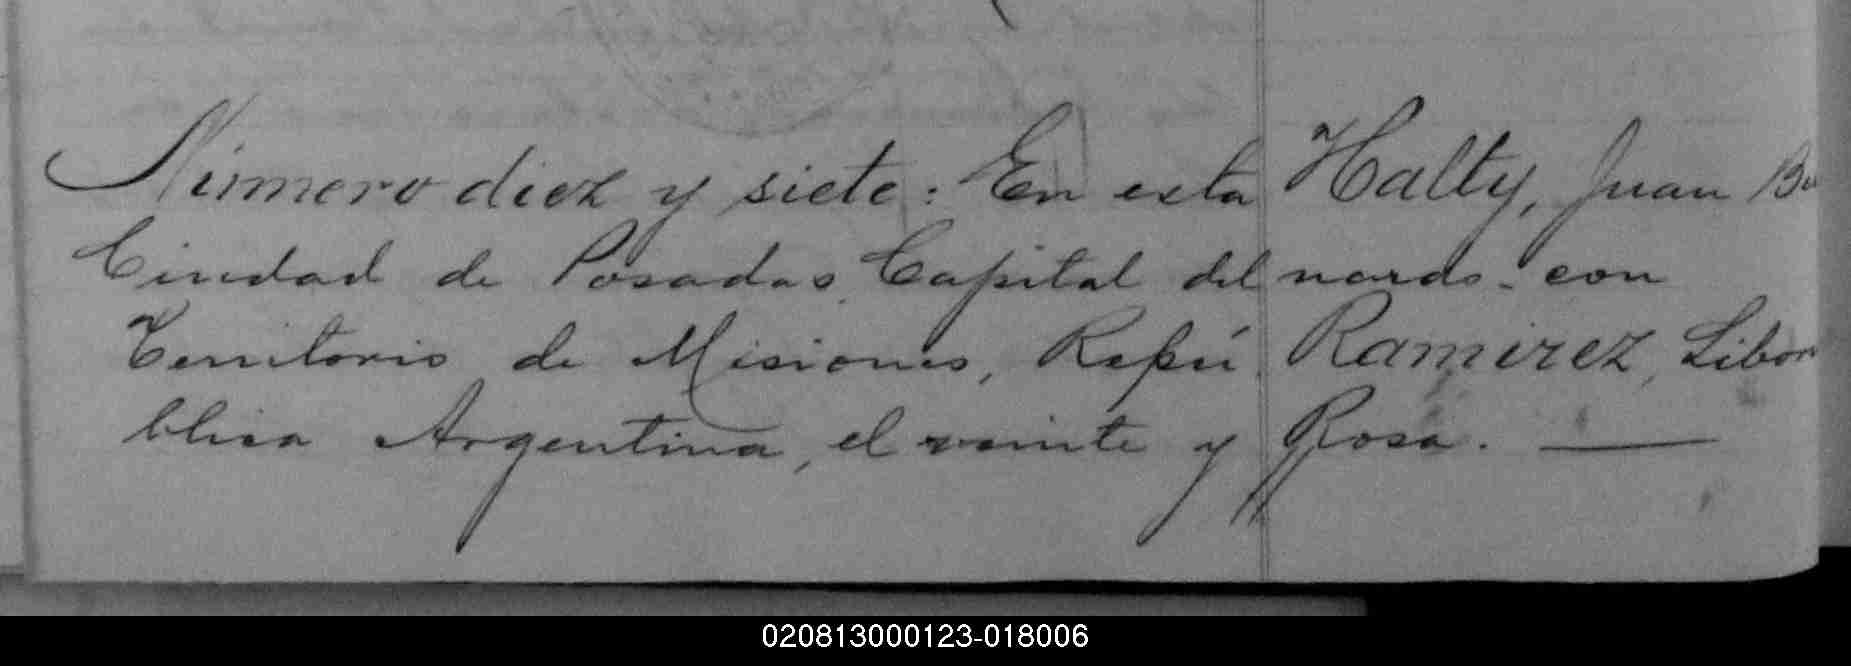 Número diez y siete: En esta
Ciudad de Posadas, Capital del
Territorio de Misiones, Repú
blica Argentina, el veinte y
Halty, Juan Ber
nardo. con
Ramirez, Libor
Rosa. —
020813000123-018006